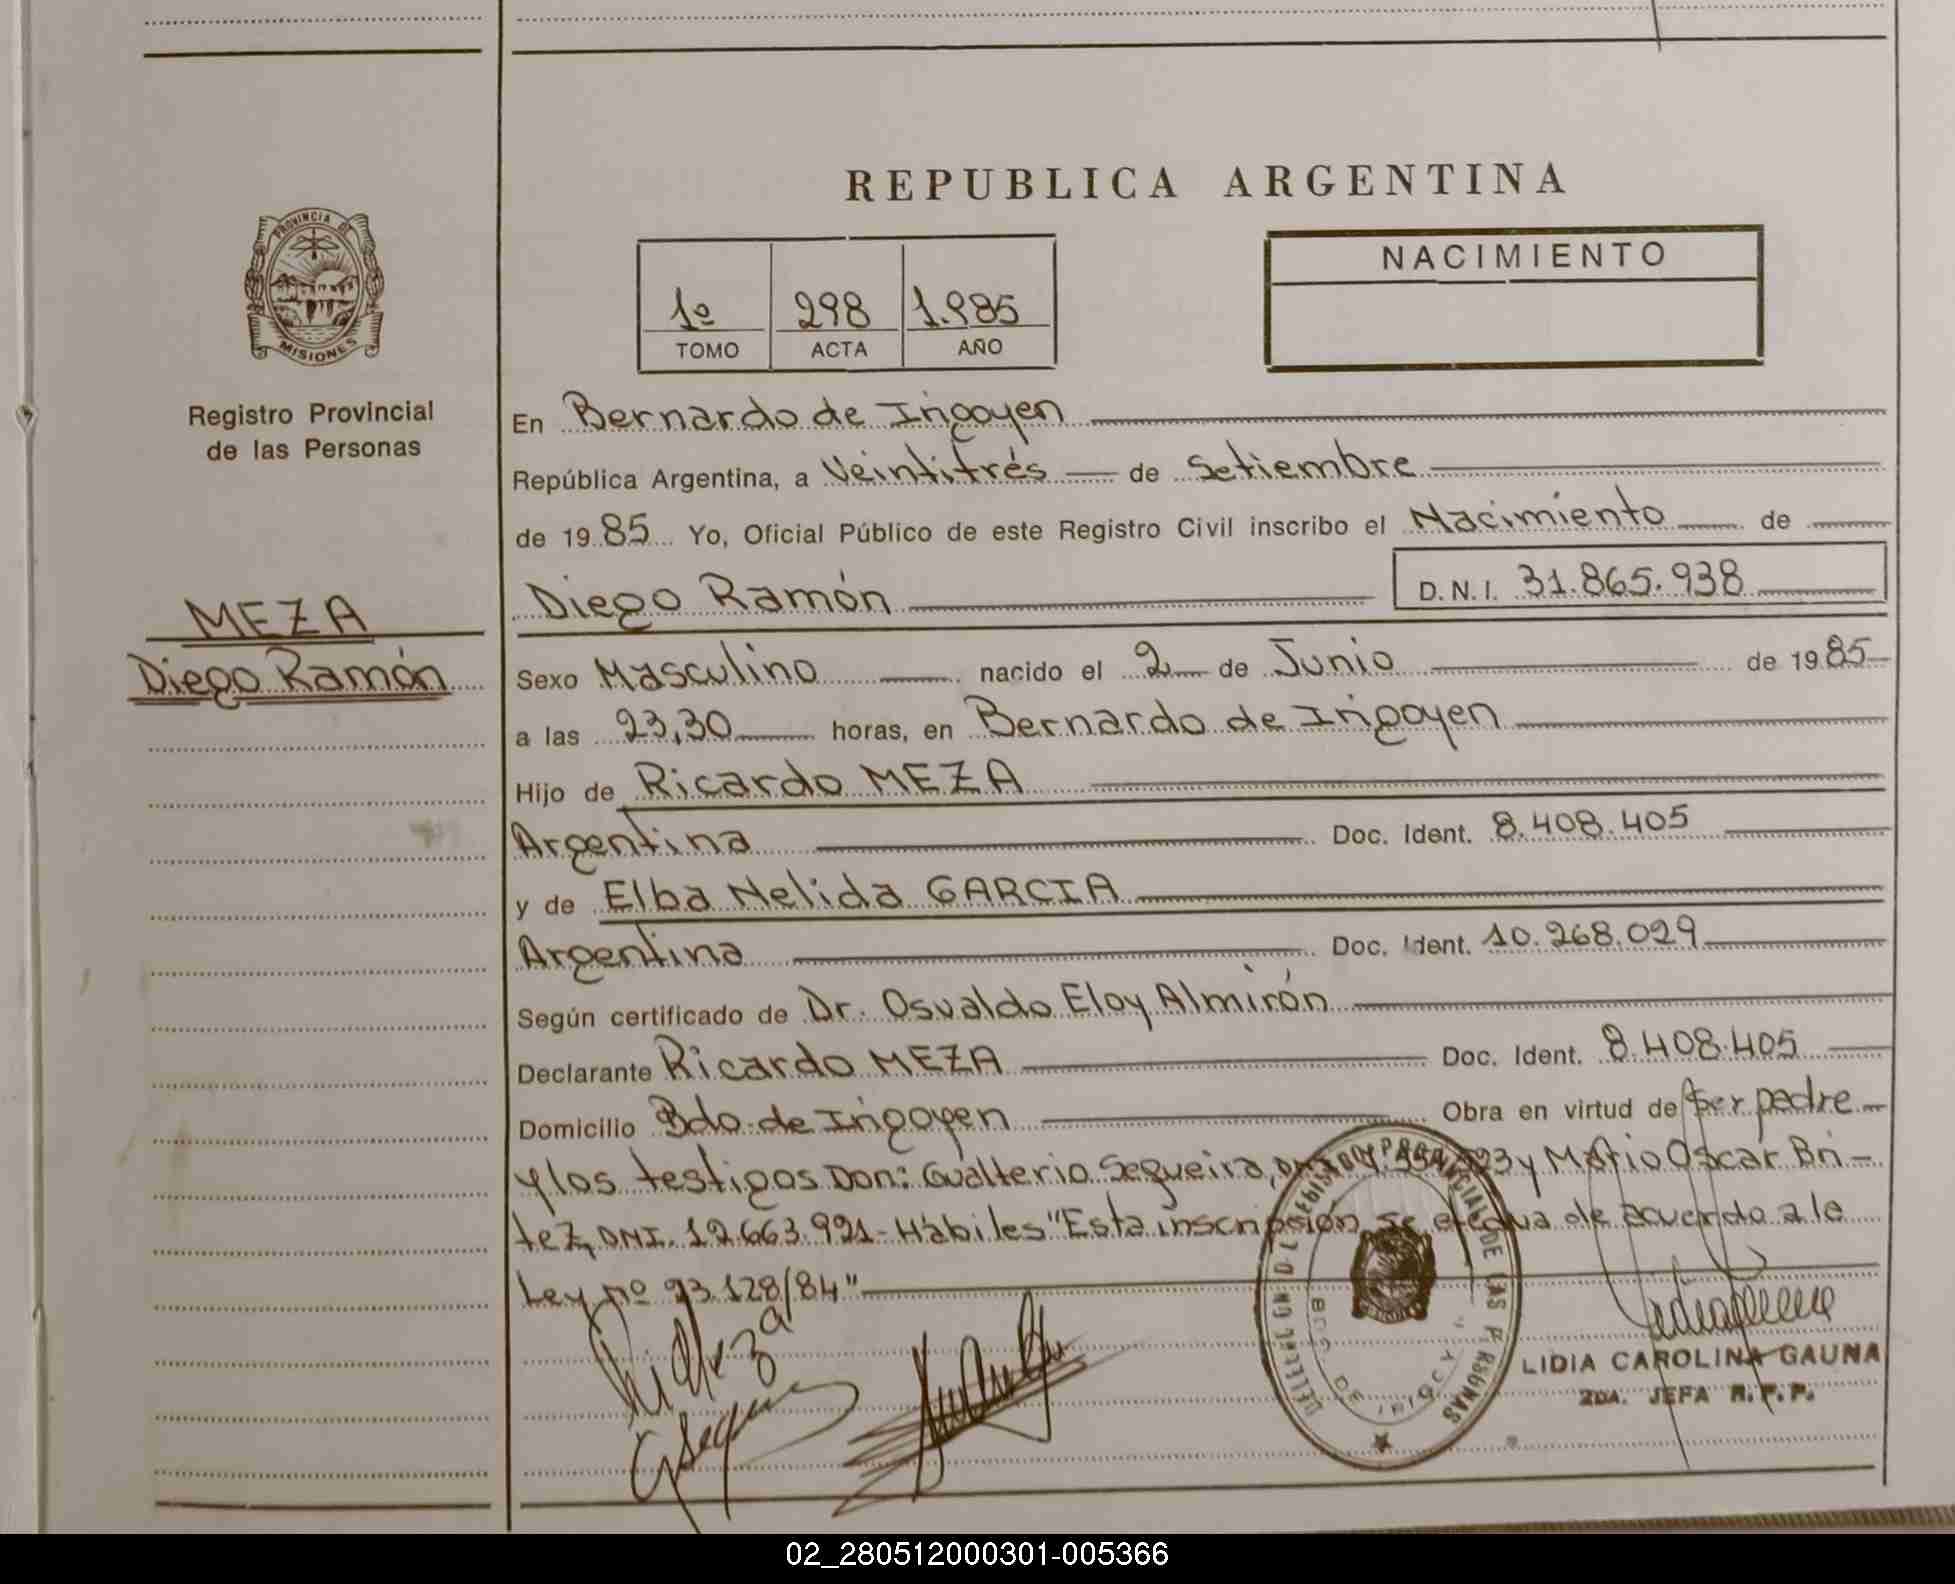 REPUBLICA ARGENTINA
PROVINCIA DE
MISIONES
Registro Provincial
de las Personas
1º 298 1.985
TOMO ACTA AÑO
NACIMIENTO
En Bernardo de Irigoyen
República Argentina, a Veintitrés de Setiembre
de 1985 Yo, Oficial Público de este Registro Civil inscribo el Nacimiento de
Diego Ramón D.N.I. 31.865.938
MEZA
Diego Ramón
Sexo Masculino nacido el 2 de Junio de 1985
a las 23,30 horas, en Bernardo de Irigoyen
Hijo de Ricardo MEZA
Argentina Doc. Ident. 8.408.405
y de Elba Nelida GARCIA
Argentina Doc. Ident. 10.268.029
Según certificado de Dr. Osvaldo Eloy Almirón
Declarante Ricardo MEZA Doc. Ident. 8.408.405
Domicilio Bdo. de Irigoyen Obra en virtud de ser padre
y los testigos Don: Gualterio Segueira, y Mario Oscar Bri-
tez, DNI. 12.663.921- Hábiles "Esta inscripción se efectua de acuerdo a la
Ley nº 23.128/84"
REGISTRO PROVINCIAL DE LAS PERSONAS
LIDIA CAROLINA GAUNA
2DA. JEFA R.P.P.
02_280512000301-005366